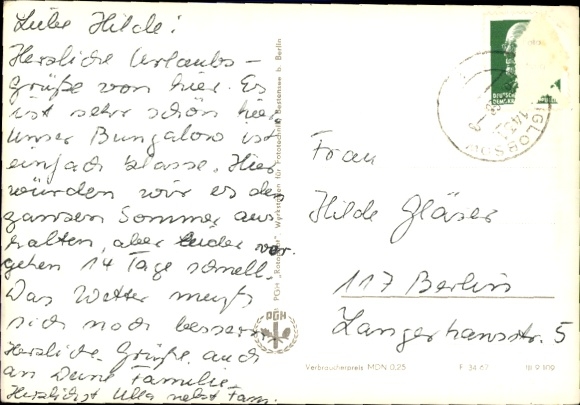 Liebe Hilde!
Herzliche Urlaubs-
grüße von hier. Es
ist sehr schön hier
unser Bungalow ist
einfach klasse. Hier
würden wir es den
ganzen Sommer aus
halten, aber leider ver.
gehen 14 Tage schnell.
Das Wetter muß
sich noch bessern
Herzliche Grüße auch
an Deine Familie
Herzlichst Ulla nebst Fam.
PGH „Rotophot", Werkstätten für Fototechnik, Bestensee b. Berlin
PGH
DEUTSCHE
GLOBSOW
1431
Frau
Hilde Gläser
117 Berlin
Langerhansstr. 5
Verbraucherpreis MDN 0,25
F 34 67